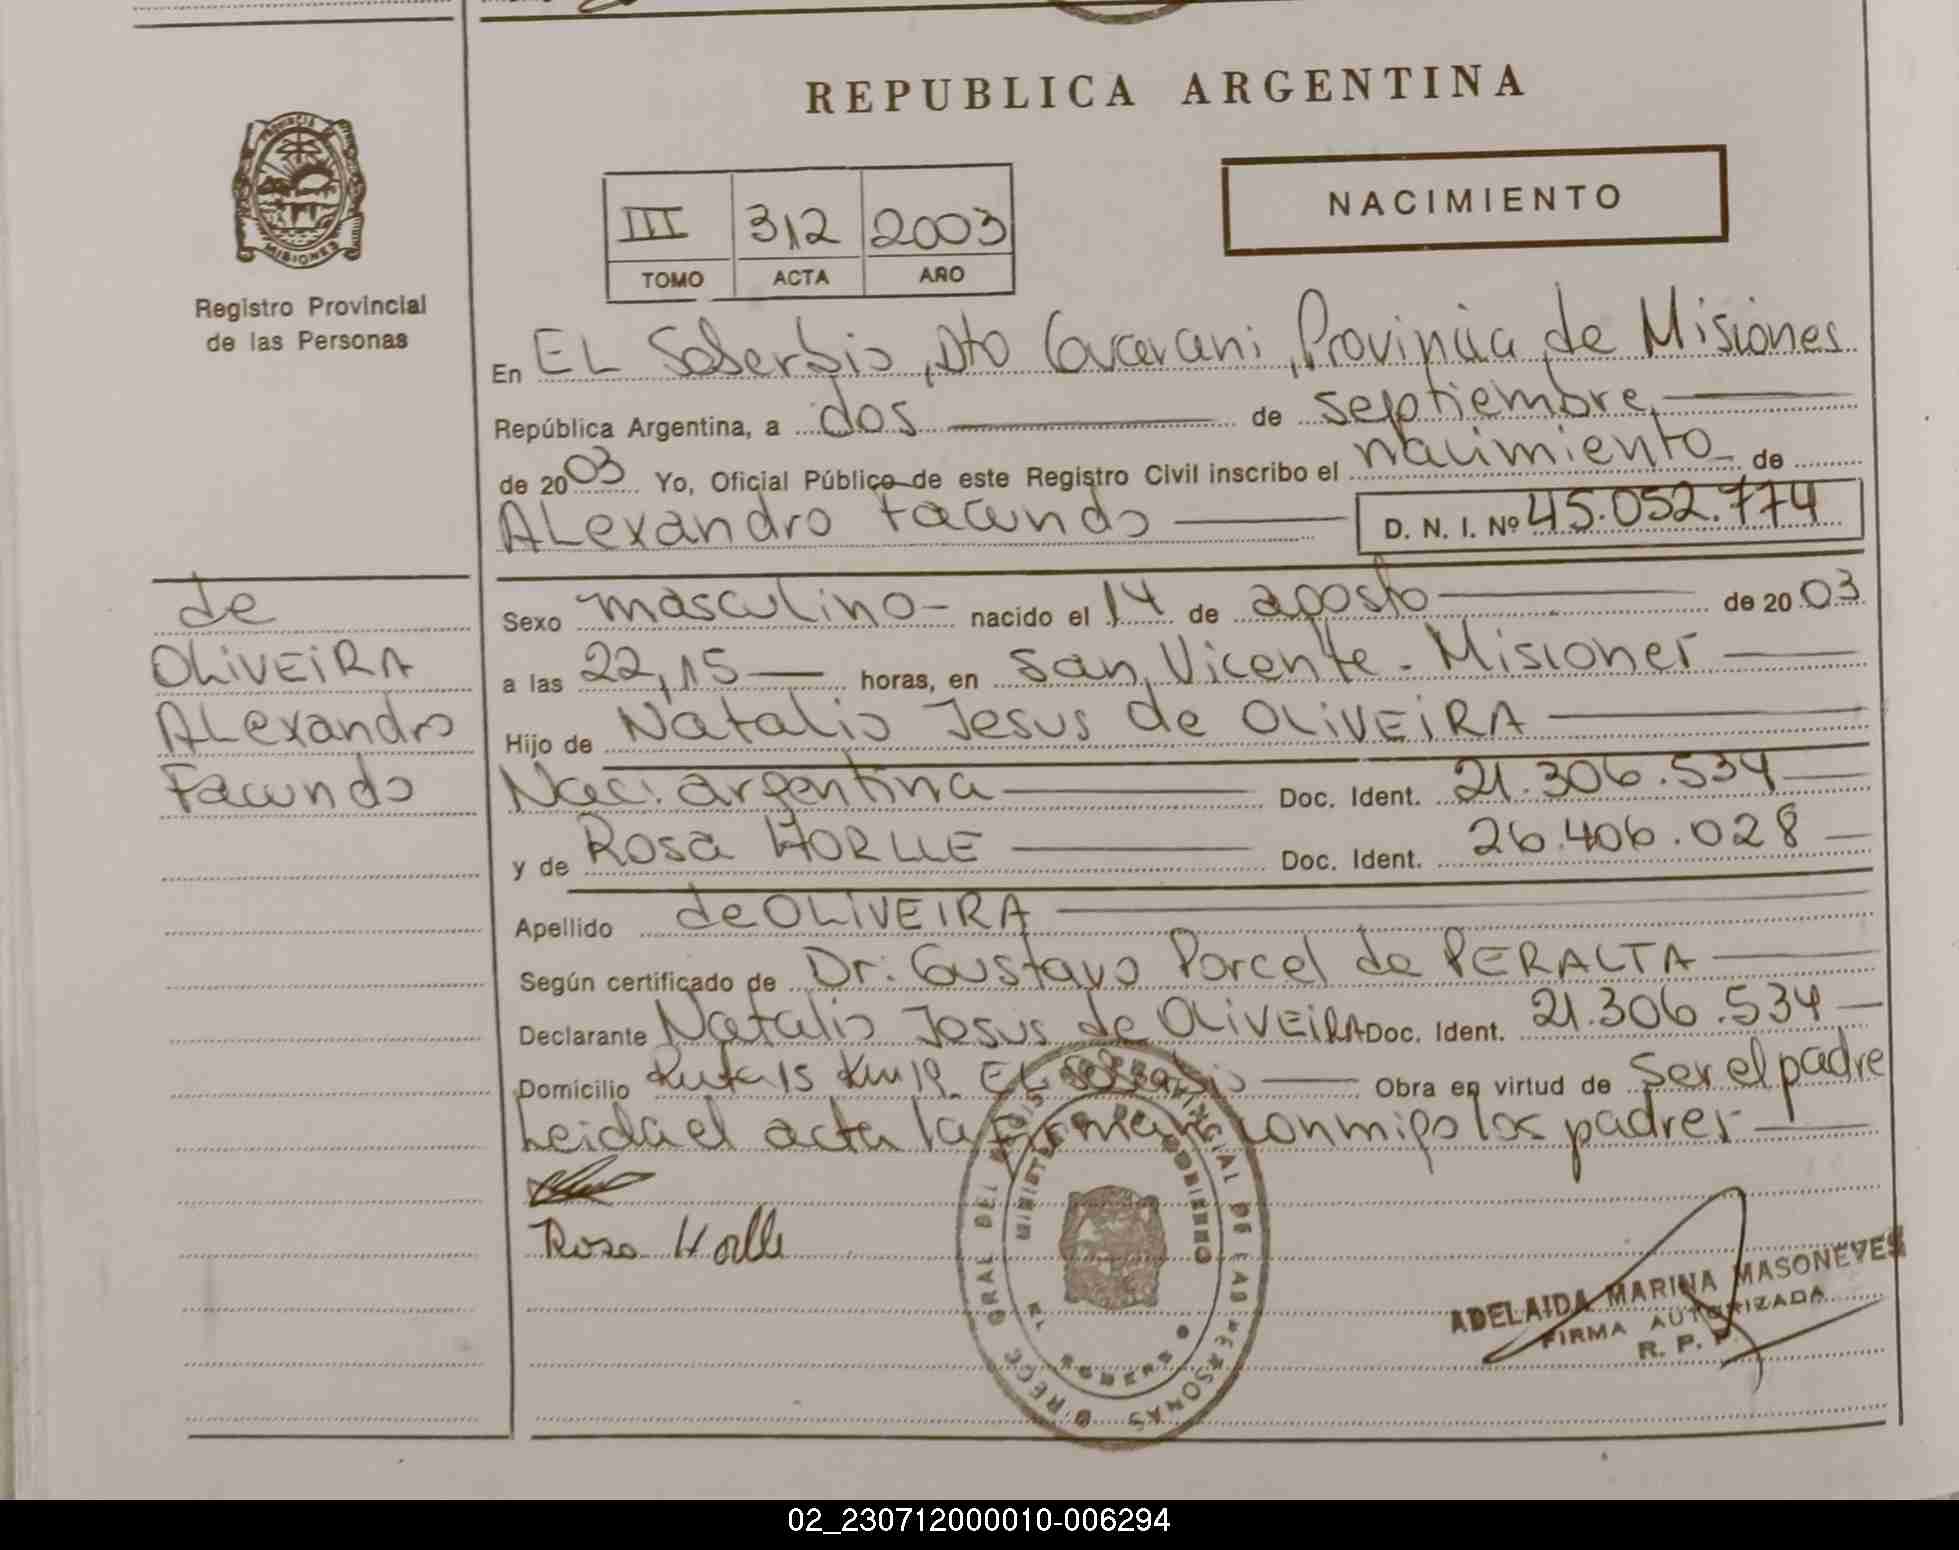 REPUBLICA ARGENTINA
PROVINCIA DE
MISIONES
Registro Provincial
de las Personas
NACIMIENTO
III 312 2003
TOMO ACTA AÑO
En EL Soberbio, Dto Guarani, Provincia de Misiones
República Argentina, a dos de septiembre
de 2003 Yo, Oficial Público de este Registro Civil inscribo el nacimiento de
ALexandro Facundo D. N. I. Nº 45.052.774
de
OLiVEiRA
ALexandro
Facundo
Sexo masculino nacido el 14 de agosto de 2003
a las 22,15 horas, en San Vicente - Misiones
Hijo de Natalio Jesus de OLiVEiRA
Nac. argentina Doc. Ident. 21.306.534
y de Rosa HORLLE Doc. Ident. 26.406.028
Apellido de OLiVEIRA
Según certificado de Dr: Gustavo Porcel de PERALTA
Declarante Natalio Jesus de OLiVEiRA Doc. Ident. 21.306.534
Domicilio Ruta 15 Km 19 EL Soberbio Obra en virtud de ser el padre
Leida el acta la firman conmigo los padres
Rosa Horlle
DIRECC. GRAL DEL REGIS PROVINCIAL DE LAS PERSONAS
MINISTERIO DE GOBIERNO
ADELAIDA MARINA MASONEVES
FIRMA AUTORIZADA
R. P. P.
02_230712000010-006294